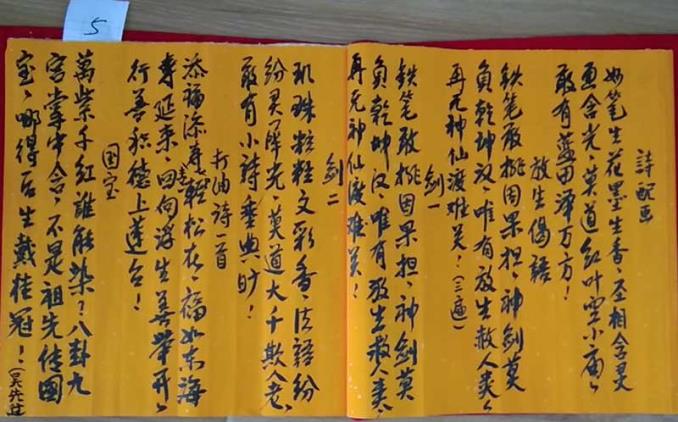 5
詩配画
妙笔生花墨生香、互相含灵
画含光、莫道红叶空小庙、
敢有蓝田泽万方！
放生偈語
铁笔敢挑因果担、神剑莫
负乾坤汉、唯有放生救人类、
再无神仙渡难关！（三遍）
剑一
铁笔敢挑因果担、神剑莫
负乾坤汉、唯有放生救人类、
再无神仙渡难关！
剑二
玑珠粒粒文彩香、法語纷
纷灵犀光、莫道大千欺人老、
敢有小詩垂典旷！
打油詩一首
添福添寿慧轻松在、福如东海
寿延来、回向浮生善举开、
行善积德上莲台！
国宝
萬紫千红誰能染？八卦九
宫掌中含、不是祖先传國
宝、哪得后生戴桂冠！（吴先